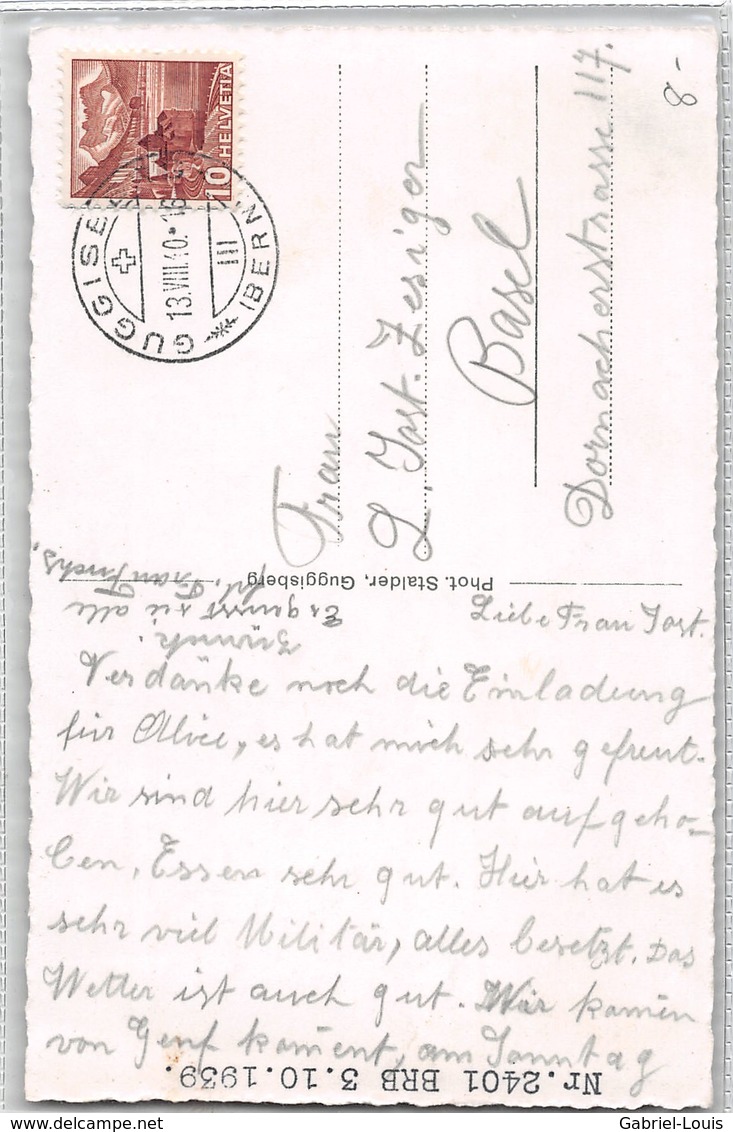 HELVETIA
10
GUGGISBERG (BERN)
13.VIII.40.-16
III
8-
Frau
L. Jost-Zesiger
Basel
Dornacherstrasse 117.
Phot. Stalder, Guggisberg
Liebe Frau Jost.
Verdanke noch die Einladung
für Alice, es hat mich sehr gefreut.
Wir sind hier sehr gut aufgeho-
ben, Essen sehr gut. Hier hat es
sehr viel Militär, alles besetzt. Das
Wetter ist auch gut. Wir kamen
von Genf koment, am Sonntag
Es grüsst sie alle
Frau Fuchs.
Nr.2401 BRB 3.10.1939.
Gabriel-Louis